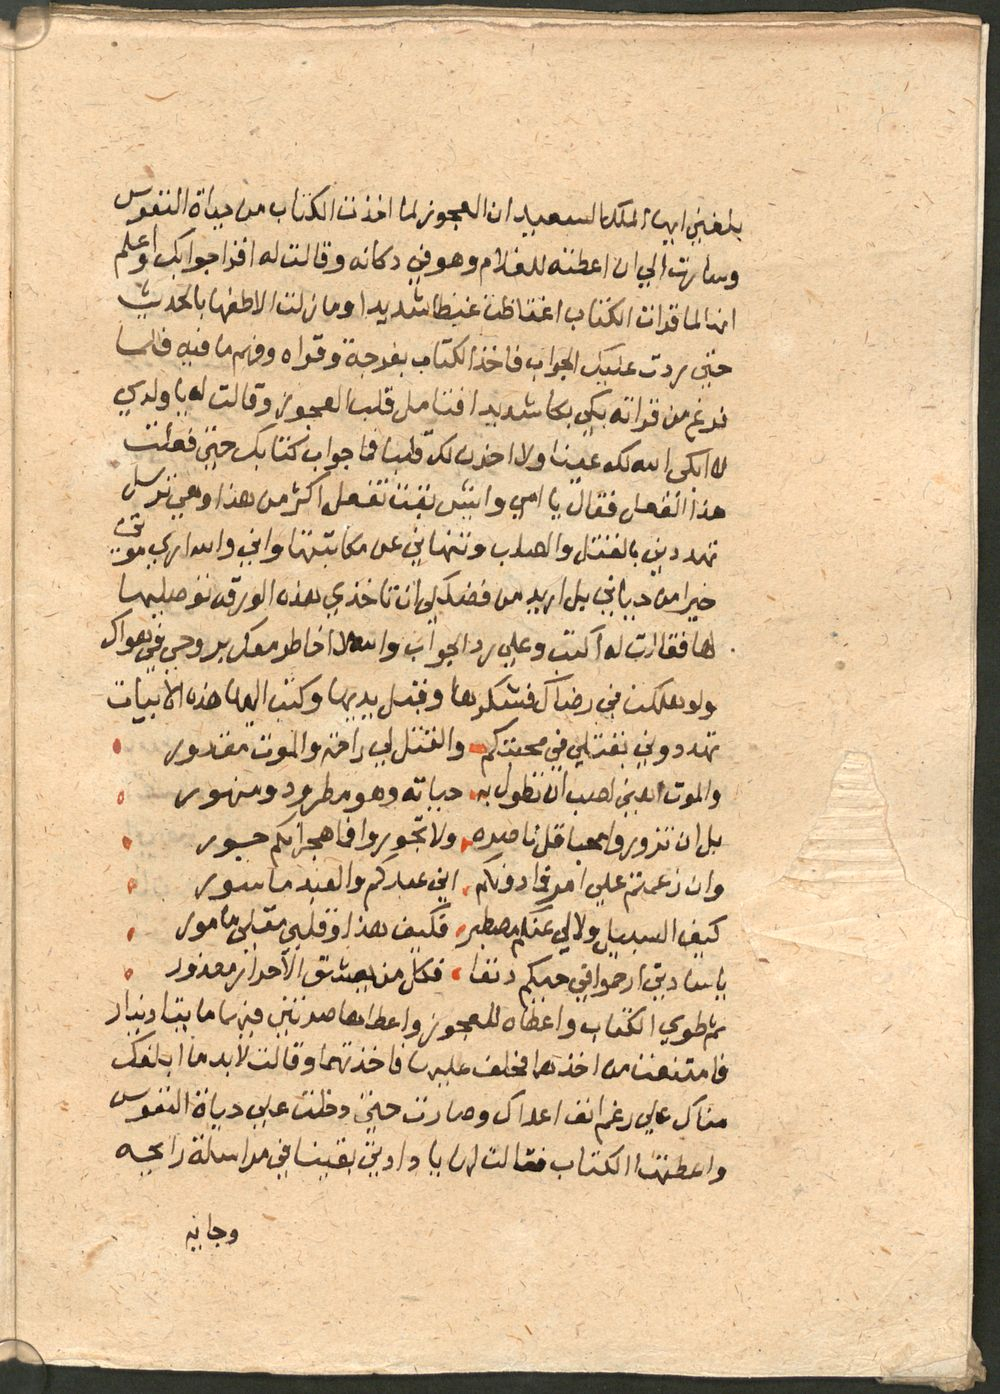 بلغني ايها الملك السعيد ان العجوز لما اخذت الكتاب من حياة النفوس
وسارت الي ان اعطته للغلام وهو في دكانه وقالت له اقرا جوابك واعلم
انها لما قرات الكتاب اغتاظت غيظا شديدا وما زلت الاطفها بالحديث
حتي ردت عليك الجواب فاخذ الكتاب بفرحة وقراه وفهم ما فيه فلما
فرغ من قراته بكي بكا شديدا فتامل قلب العجوز وقالت له يا ولدي
لا ابكي الله لك عينا ولا احزن لك قلبا فما جواب كتابك حتي فعلت
هذا الفعل فقال يا امي وايش بقت تفعل اكثر من هذا وهي ترسل
تهددني بالقتل والصلب وتنهاني عن مكاتبتها واني والله اري موتي
خيرا من حياتي بل اريد من فضلك لي ان تاخذي هذه الورقه توصليها
لها فقالت له اكتب وعلي رد الجواب والله لا خاطر معك بروحي في هواك
ولو هلكت في رضاك فشكرها وقبل يديها وكتب اليها هذه الابيات
تهددوني بقتلي في محبتكم والقتل لي راحة والموت مقدور
والموت اهني لصب ان تطول به حياته وهو مطرود ومنهور
بل ان تزوروا محبا قل ناصره ولا تجوروا فما هجرانكم جور
وان زعمتم علي امر فادونكم اني عبدكم والعبد ماسور
كيف السبيل ولا لي عنكم مصطبر فكيف هذا وقلبي مقبل مامور
يا سادتي ارحموا في حبكم دنفا فكل من يعشق الاحرار معذور
ثم طوي الكتاب واعطاه للعجوز واعطاها صرتين فيهما مايتا دينار
فامتنعت من اخذهما فحلف عليها فاخذتهما وقالت لابد ما ابلغك
مناك علي رغم انف اعداك وصارت حتي دخلت علي حياة النفوس
واعطتها الكتاب فقالت لها يا دادتي بقينا في مراسلة رايحه
وجايه